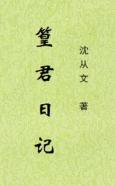 篁君日记
沈从文 著